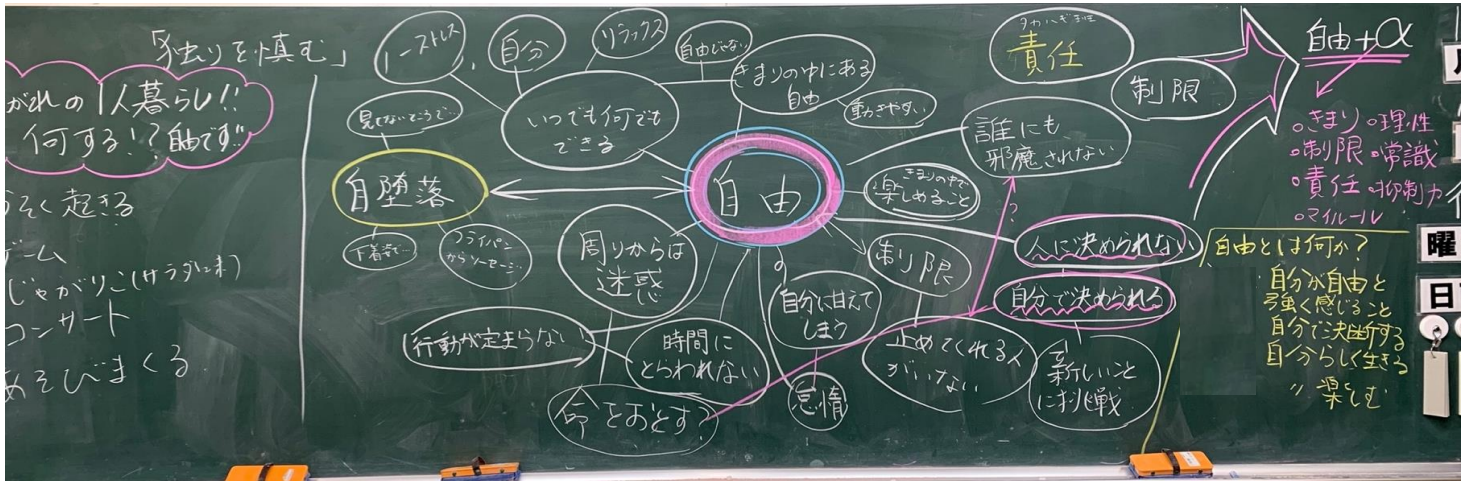 「独りを慎む」
がれの1人暮らし!!
何する!?自由です!!
うそく起きる
ゲーム
じゃがりこ(サラダに味)
コンサート
あそびまくる
ノーストレス
自分
リラックス
自由じゃない
きまりの中にある
自由
動きやすい
いつでも何でも
できる
見てないところで…
自堕落
下着姿で…
フライパン
からソーセージ…
自由
周りからは
迷惑
行動が定まらない
時間に
とらわれない
命をおとす?
自分に甘えて
しまう
怠惰
制限
止めてくれる人
がいない
誰にも
邪魔されない
?
きまりの中で
楽しめること
人に決められない
自分で決められる
新しいこと
に挑戦
責任
制限
自由+α
○きまり ○理性
○制限 ○常識
○責任 ○抑制力
○マイルール
自由とは何か?
自分が自由と
強く感じること
自分で決断する
自分らしく生きる
〃 楽しむ
曜
日